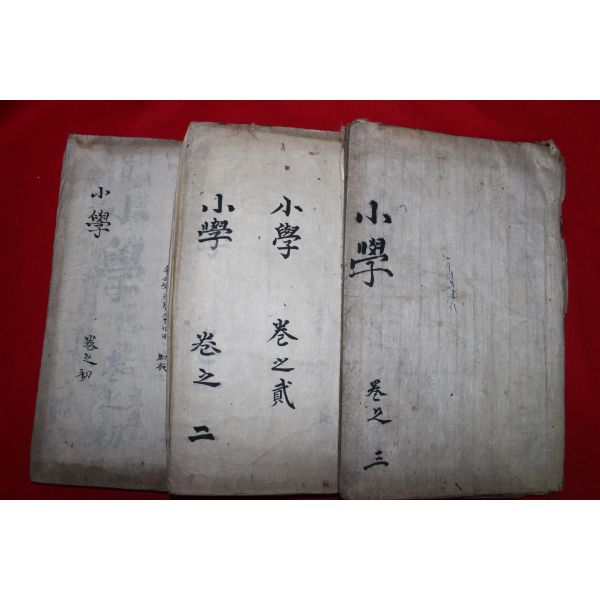 小學
卷之初
小學
卷之二
小學
卷之貳
小學
卷之三